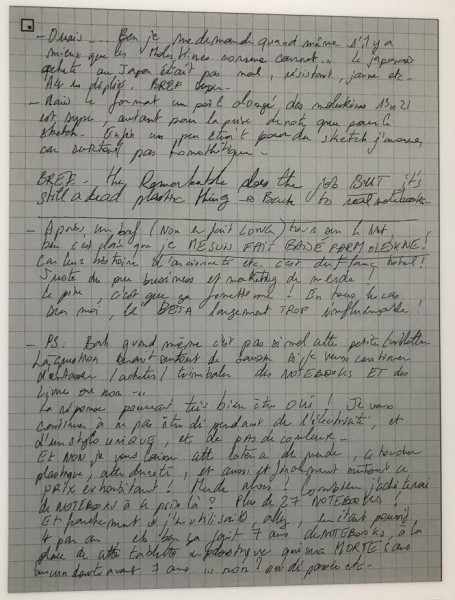 - Ouais... Ben je me demande quand même s'il y a
mieux que les Moleskines comme carnet... le japonais
acheté au Japon était pas mal, résistant, jaune etc-
BREF super-
- Mais le format un poil allongé des moleskines 13x21
est super, autant pour la prise de note que pour le
sketch- Enfin un peu étroit pour du sketch j'avoue,
car surtout pas homothétique-
BREF- the Remarkable does the job BUT it's
still a dead plastic thing → Back to real notebooks-
- Après, un bref (non en fait long) tour sur le Net,
ben c'est clair que je ME SUIS FAIT BAISÉ PAR MOLESKINE!
Car leur histoire d'ancienneté etc, c'est du flanc total!
Juste du pur business et marketing de merde!
Le pire, c'est que ça fonctionne! En tous les cas
sur moi, le BETA largement TROP influençable!
- PS. Bah quand même c'est pas si mal cette petite tablette
La question étant surtout de savoir si je veux continuer
d'utiliser / acheter / trimbaler des NOTEBOOKS ET des
Livres ou non...
La réponse pourrait très bien être OUI! Je veux
continuer à ne pas être dépendant de l'électricité, et
d'un stylo UNIQUE, et de PAS de couleur-
Et NON je veux laisser cette latence de merde, ce toucher
plastique, cette dureté, et aussi et finalement surtout ce
PRIX exhorbitant! Merde alors! Combien j'achèterais
de NOTEBOOKS à ce prix là? Plus de 27 NOTEBOOKS!
Et franchement si j'en utilisais, allez, en étant
4 par an- eh ben ça fait 7 ans de NOTEBOOKS, à la
place de cette tablette qui sera MORTE sans
aucun doute avant 7 ans → non? oui di parole etc-